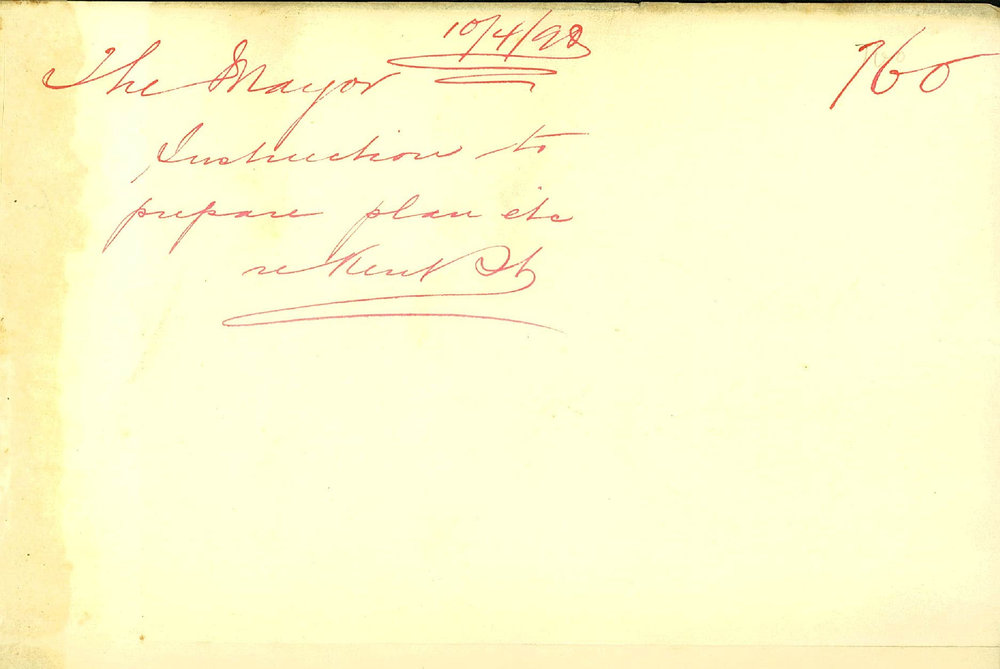 10/4/92
The Mayor
760
Instruction to
prepare plan etc
re Kent St